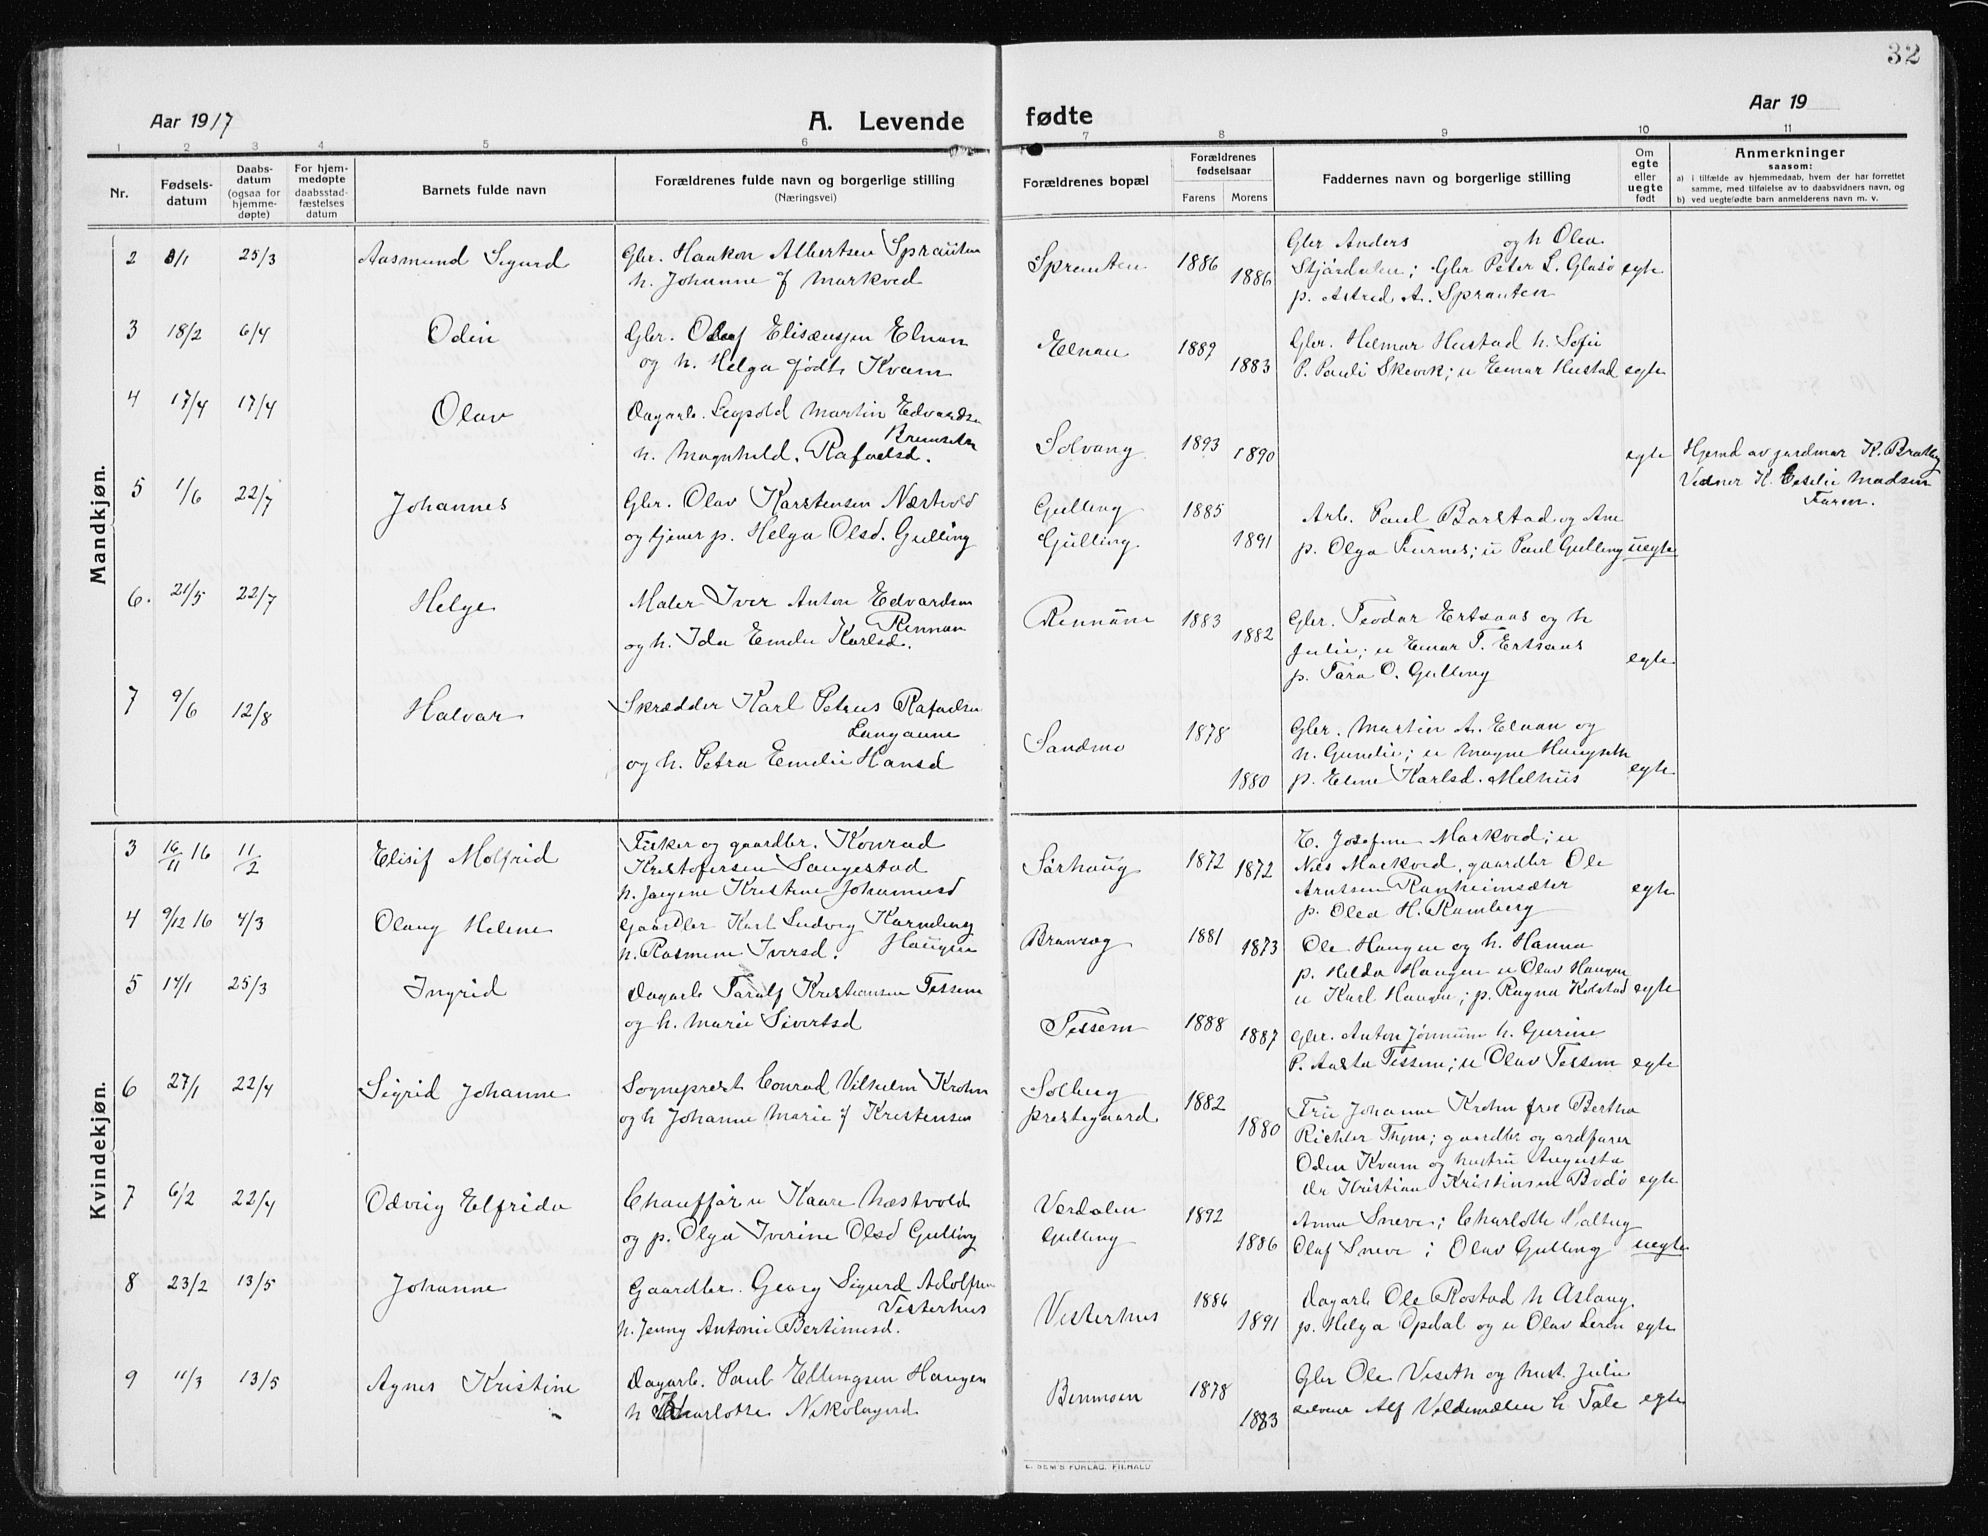 32
Aar 1917
A. Levende
fødte
Aar 19
1 2 3 4 5 6 7 8 9 10 11
Nr.
Fødsels-
datum
Daabs-
datum
(ogsaa for
hjemme-
døpte)
For hjem-
medøpte
daabsstad-
fæstelses
datum
Barnets fulde navn
Forældrenes fulde navn og borgerlige stilling
(Næringsvei)
Forældrenes bopæl
Forældrenes
fødselsaar
Farens Morens
Faddernes navn og borgerlige stilling
Om
egte
eller
uegte
født
Anmerkninger
saasom:
a) i tilfælde av hjemmedaab, hvem der har forrettet
samme, med tilføielse av to daabsvidners navn, og
b) ved uegtefødte barn anmelderens navn m. v.
Mandkjøn.
2 8/1 25/3 Aasmund Sigurd
Gbr. Haakon Albertsen Sprauten
h. Johanne f Markved
Sprauten 1886 1886
Gbr Anders og h Olea
Stjørdalen; Gbr Peter L. Glasø egte
p. Astred A. Sprauten
3 18/2 6/4 Odin
Gbr. Olaf Elisæussen Elnan
og h. Helga født Kvam
Elnan 1889 1883
Gbr. Hilmar Hustad h. Sofie
P. Pauli Skevik; u Einar Hustad egte
4 17/4 17/4 Olav
Dagarb. Leopold Martin Edvardsen
Bremseth
h. Magnhild. Rafaelsd.
Solvang 1893 1890
egte
Hjemd av jordmor K. Bratberg
Vidner K. Eselie Madsen
Faren.
5 1/6 22/7 Johannes
Gbr. Olav Karstensen Næstvold
og tjener p. Helga Olsd. Gulling
Gulling 1885
Gulling 1891
Arb. Paul Barstad og Ane
p. Olga Furnes; u Paul Gulling uegte
6. 21/5 22/7 Helge
Maler Iver Anton Edvardsen
Rennan
og h. Ida Emelie Karlsd.
Rennan 1883 1882
Gbr. Teodor Ertsaas og h
Julie; u Einar T. Ertsaas
p. Tara O. Gulling
egte
7 9/6 12/8 Halvar
Skrædder Karl Petrus Rafaelsen
Langaune
og h. Petra Emelie Hansd
Sandmo 1878 1880
Gbr. Martin A. Elnan og
h. Gunelie; u Magne Haugseth
p. Eline Karlsd. Melhus egte
Kvindekjøn.
3 16/11 16 11/2 Elisif Molfrid
Fisker og gaardbr. Konrad
Kristofersen Saugestad
h. Jørgine Kristine Johannesd
Sørhaug 1872 1872
E. Josefine Markved; u
Nils Markved, gaardbr Ole
Arntsen Ranheimsæter
p. Olea H. Ramberg
egte
4 9/12 16 4/3 Olaug Helene
Gaardbr Karl Ludvig
Haugen
h. Rasmine Iversd.
1881 1873
Ole Haugen og h. Hanna
p. Hilda Haugen u Olav Haugen
u Karl Haugen; p. Ragna Kolstad egte
5 14/1 25/3 Ingrid
Dagarb Taralf Kristiansen Tessem
og h. Marie Sivertsd
Tessem 1888 1887
Gbr. Anton Jönnum h. Gurine
P. Aasta Tessem; u Olav Tessem egte
6 27/1 22/4 Sigrid Johanne
Sogneprest Conrad Vilhelm Krohn
og h Johanne Marie f Kristensen
Solberg
prestegaard
1882 1880
Frü Johanne Krohn frk Bertha
Richter Thym; gaardbr og ordfører
Oden Kvam og hustru Augusta
Dr Kristian Kristensen Bodø egte
7 6/2 22/4 Odveig Elfrida
Chauffør u Kaare Næstvold
og p. Olga Iverine Olsd Gulling
Verdalen
Gulling
1892 1886
Anna Sneve; Charlotte Halberg
Olaf Sneve; Olav Gulling uegte
8 23/2 13/5 Johanne
Gaardbr. Georg Sigurd Adolfsen
Vesterhus
h. Jenny Antonie Bertinusd.
Vesterhus 1886 1891
Dagarb Ole Rostad h Aslaug.
p. Helga Opdal og u Olav Leren egte
9 11/3 13/5 Agnes Kristine
Dagarb. Paul Ellingsen Haugen
h Charlotte Nikolaysd
Benmoen 1878 1883
Gbr Ole Viseth og hust. Julie
selveier Alf Voldmælen h Tale egte
E. SEM'S FORLAG. FR.HALD